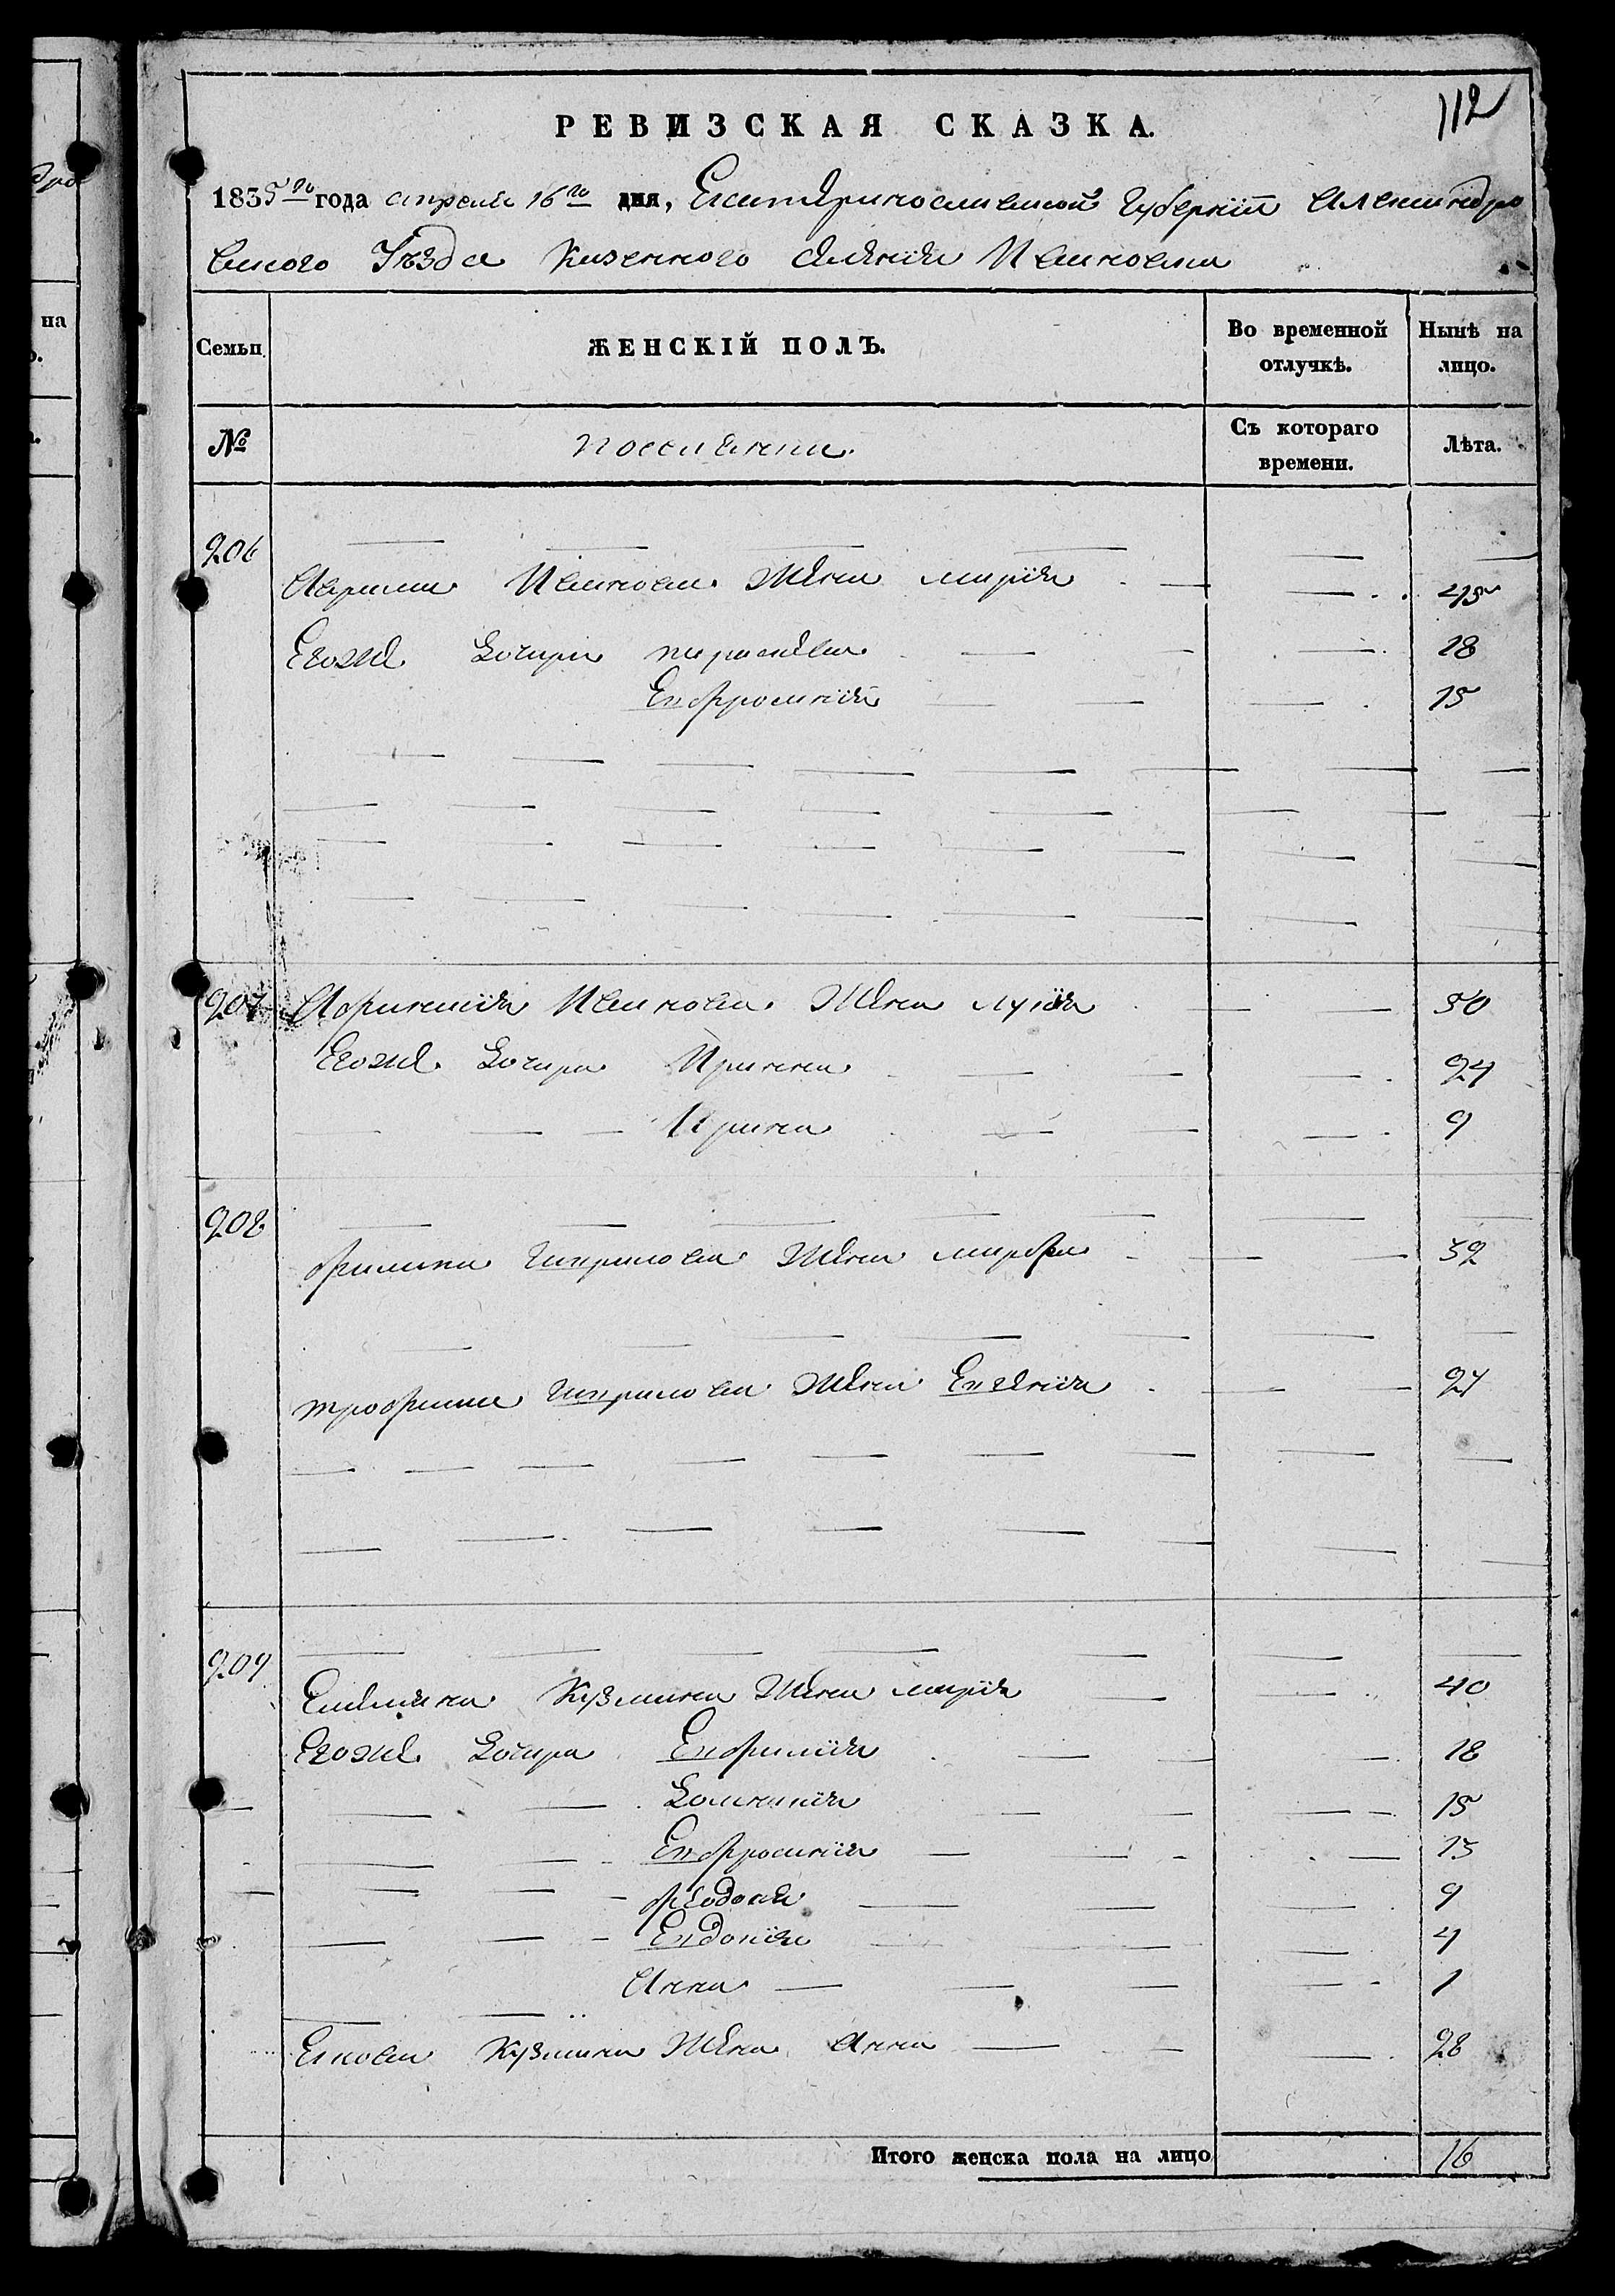 112
РЕВИЗСКАЯ СКАЗКА.
1835го года апреля 16го дня, Екатеринославской Губернии Александро
вского Уезда Казенного селения Ивановки
Семьи ЖЕНСКІЙ ПОЛЪ. Во временной отлучкѣ. Нынѣ на лицо.
№ поселяни Съ котораго времени. Лѣта.
206
Аврама Иванова Жена мария 45
Егоже Дочери параскева 18
Евфросиния 15
207 Афанасия Иванова Жена лукия 50
Егоже Дочери Ирина 24
Ирина 9
208
филипа Гаврилова Жена марфа 32
трофима Гаврилова Жена Евгения 24
209
Емеляна Кузмина Жена мария 40
Егоже Дочери Евфимия 18
Домникия 15
Евфросиния 13
феодосия 9
Евдокия 4
Анна 1
Якова Кузмина Жена Анна 28
Итого женска пола на лицо 16
на